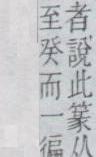 者說此篆从
至癸而一徧